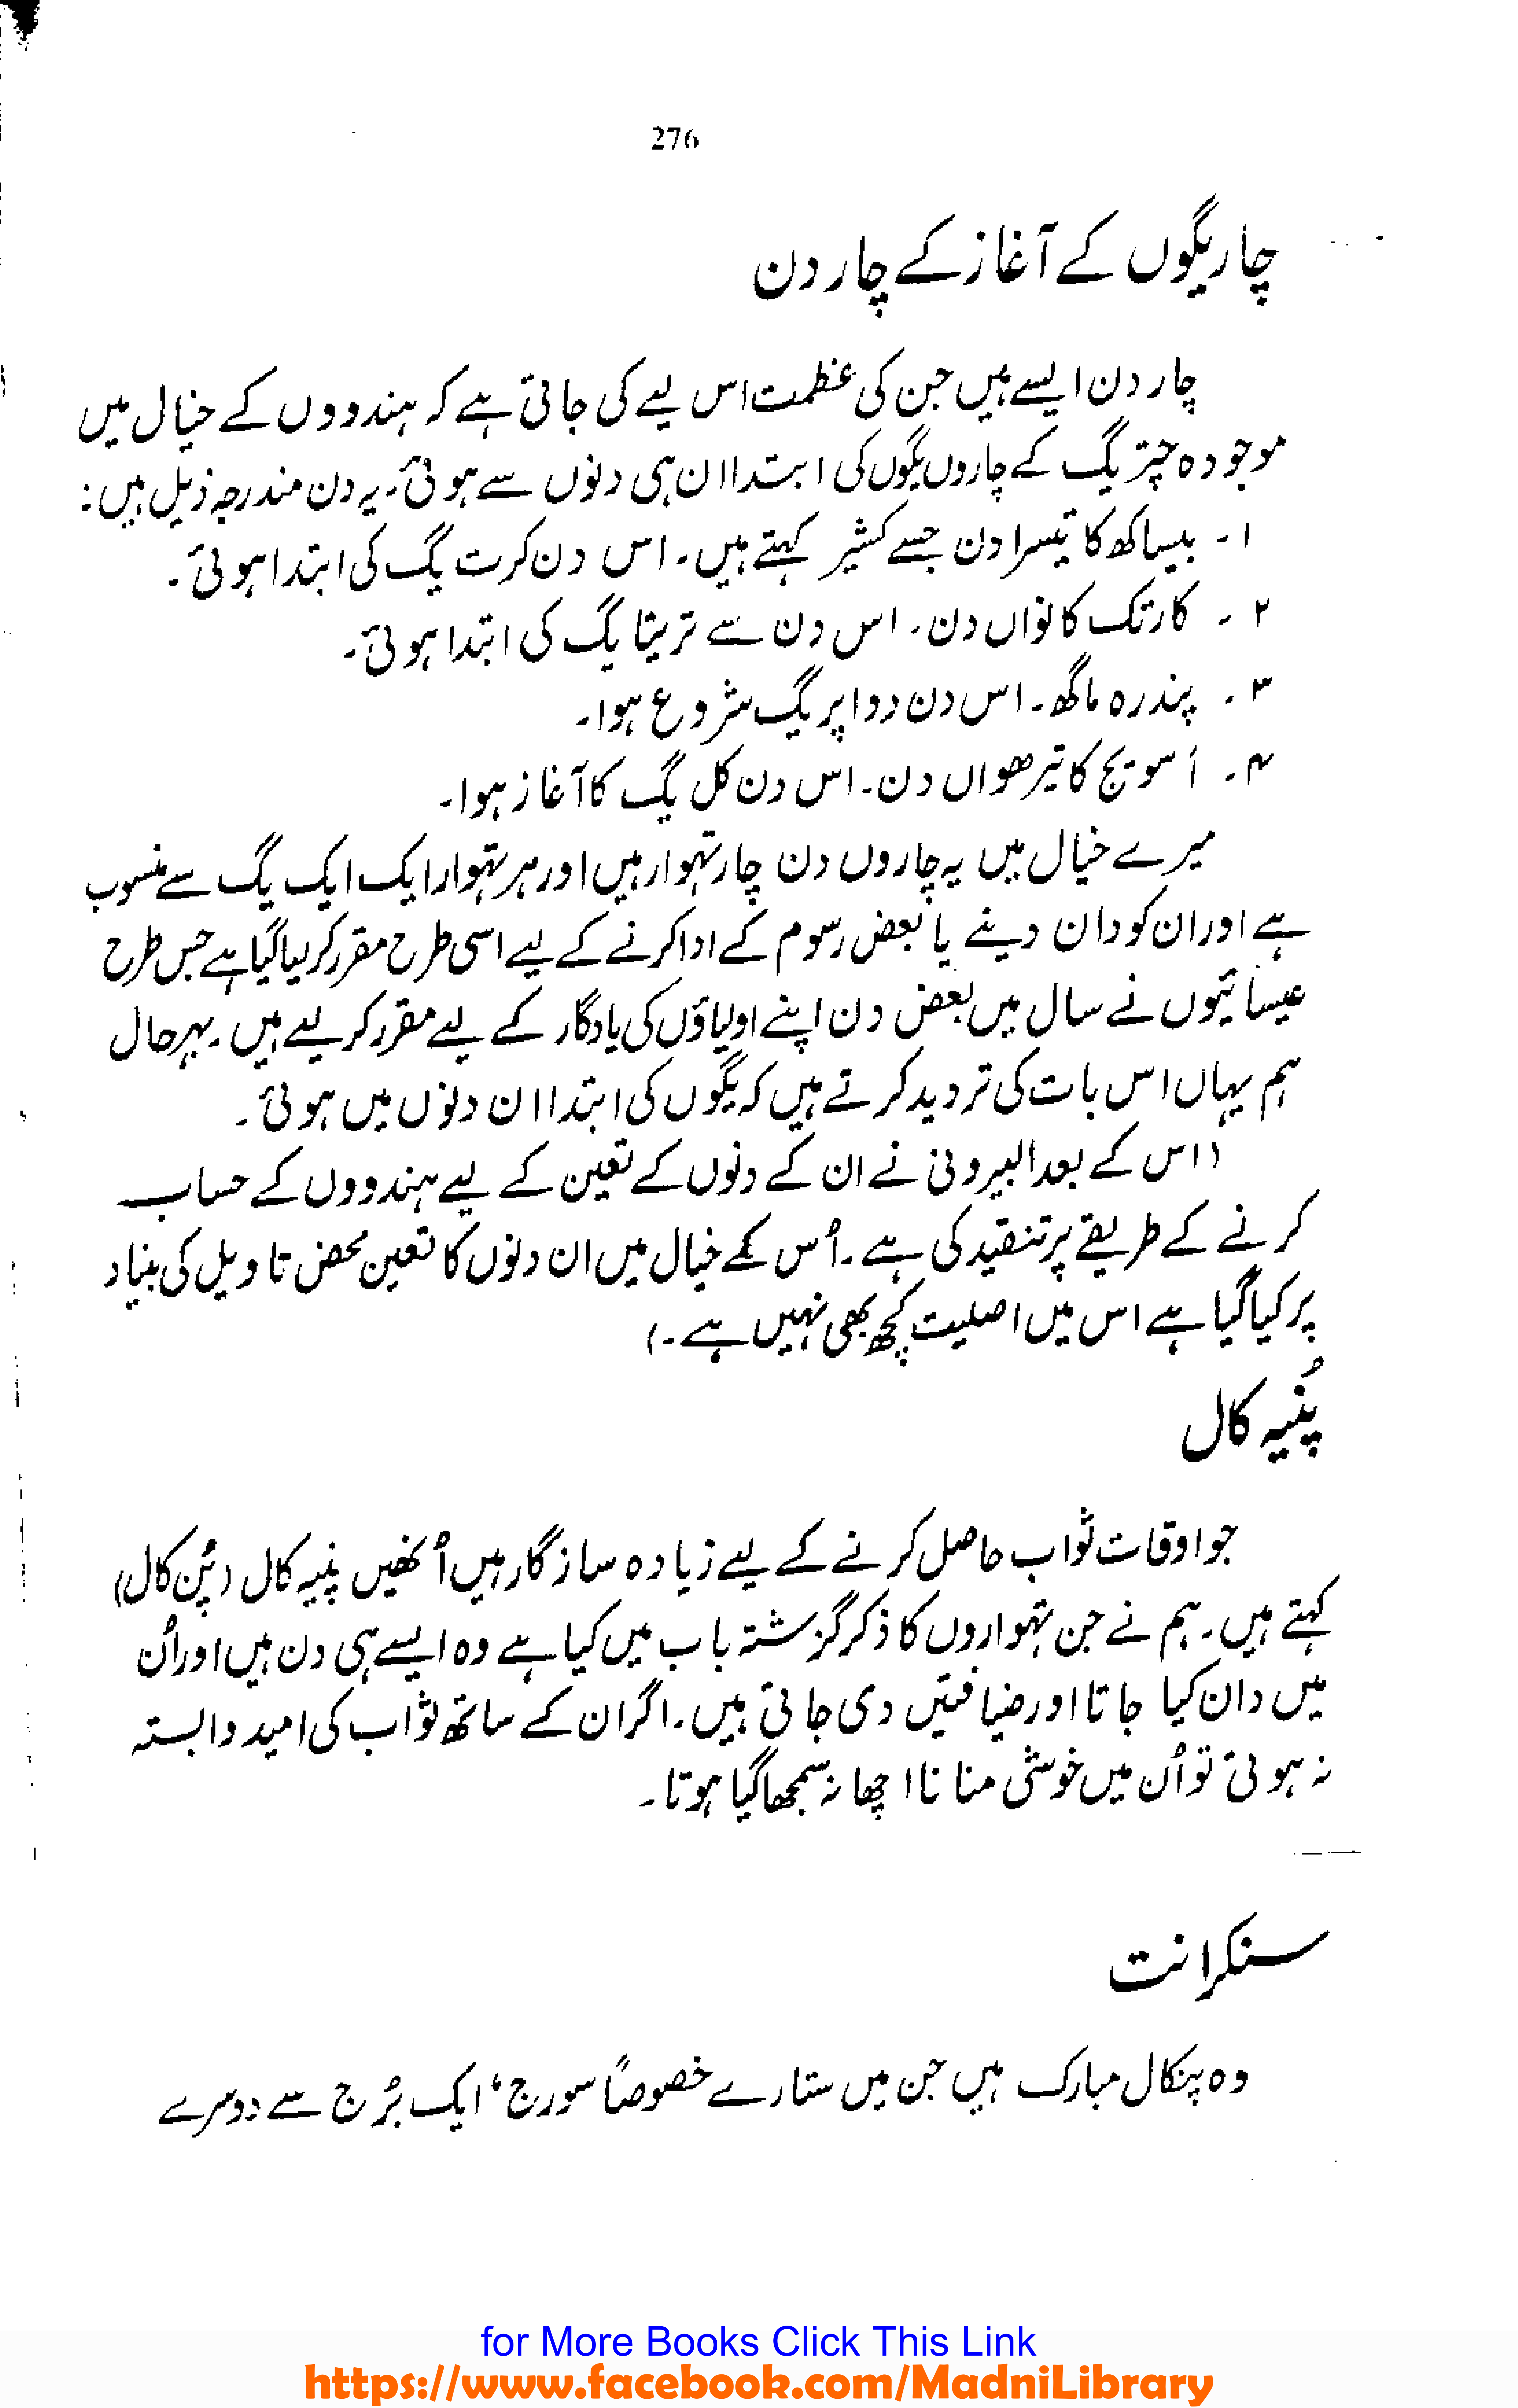 276
چار یگوں کے آغاز کے چار دن
چار دن ایسے ہیں جن کی عظمت اس لیے کی جاتی ہے کہ ہندووں کے خیال میں
موجودہ چتر یگ کے چاروں یگوں کی ابتدا ان ہی دنوں سے ہوئی۔ یہ دن مندرجہ ذیل ہیں:
۱۔ بیساکھ کا تیسرا دن جسے کشیر کہتے ہیں۔ اس دن کرت یگ کی ابتدا ہوئی۔
۲۔ کارتک کا نواں دن۔ اس دن سے تریتا یگ کی ابتدا ہوئی۔
۳۔ پندرہ ماگھ۔ اس دن دواپر یگ شروع ہوا۔
۴۔ اسویج کا تیرھواں دن۔ اس دن کل یگ کا آغاز ہوا۔
میرے خیال میں یہ چاروں دن چار تہوار ہیں اور ہر تہوار ایک ایک یگ سے منسوب
ہے اور ان کو دان دینے یا بعض رسوم کے ادا کرنے کے لیے اسی طرح مقرر کر لیا گیا ہے جس طرح
عیسائیوں نے سال میں بعض دن اپنے اولیاؤں کی یادگار کے لیے مقرر کر لیے ہیں۔ بہرحال
ہم یہاں اس بات کی تردید کرتے ہیں کہ یگوں کی ابتدا ان دنوں میں ہوئی۔
(اس کے بعد البیرونی نے ان کے دنوں کے تعین کے لیے ہندووں کے حساب
کرنے کے طریقے پر تنقید کی ہے۔ اُس کے خیال میں ان دنوں کا تعین محض تاویل کی بنیاد
پر کیا گیا ہے اس میں اصلیت کچھ بھی نہیں ہے۔)
پُنیہ کال
جو اوقات ثواب حاصل کرنے کے لیے زیادہ سازگار ہیں اُنھیں پنیہ کال (پُن کال)
کہتے ہیں۔ ہم نے جن تہواروں کا ذکر گزشتہ باب میں کیا ہے وہ ایسے ہی دن ہیں اور اُن
میں دان کیا جاتا اور ضیافتیں دی جاتی ہیں۔ اگر ان کے ساتھ ثواب کی امید وابستہ
نہ ہوتی تو اُن میں خوشی منانا اچھا نہ سمجھا گیا ہوتا۔
سنکرانت
وہ پنکال مبارک ہیں جن میں ستارے خصوصاً سورج، ایک بُرج سے دوسرے
for More Books Click This Link
https://www.facebook.com/MadniLibrary